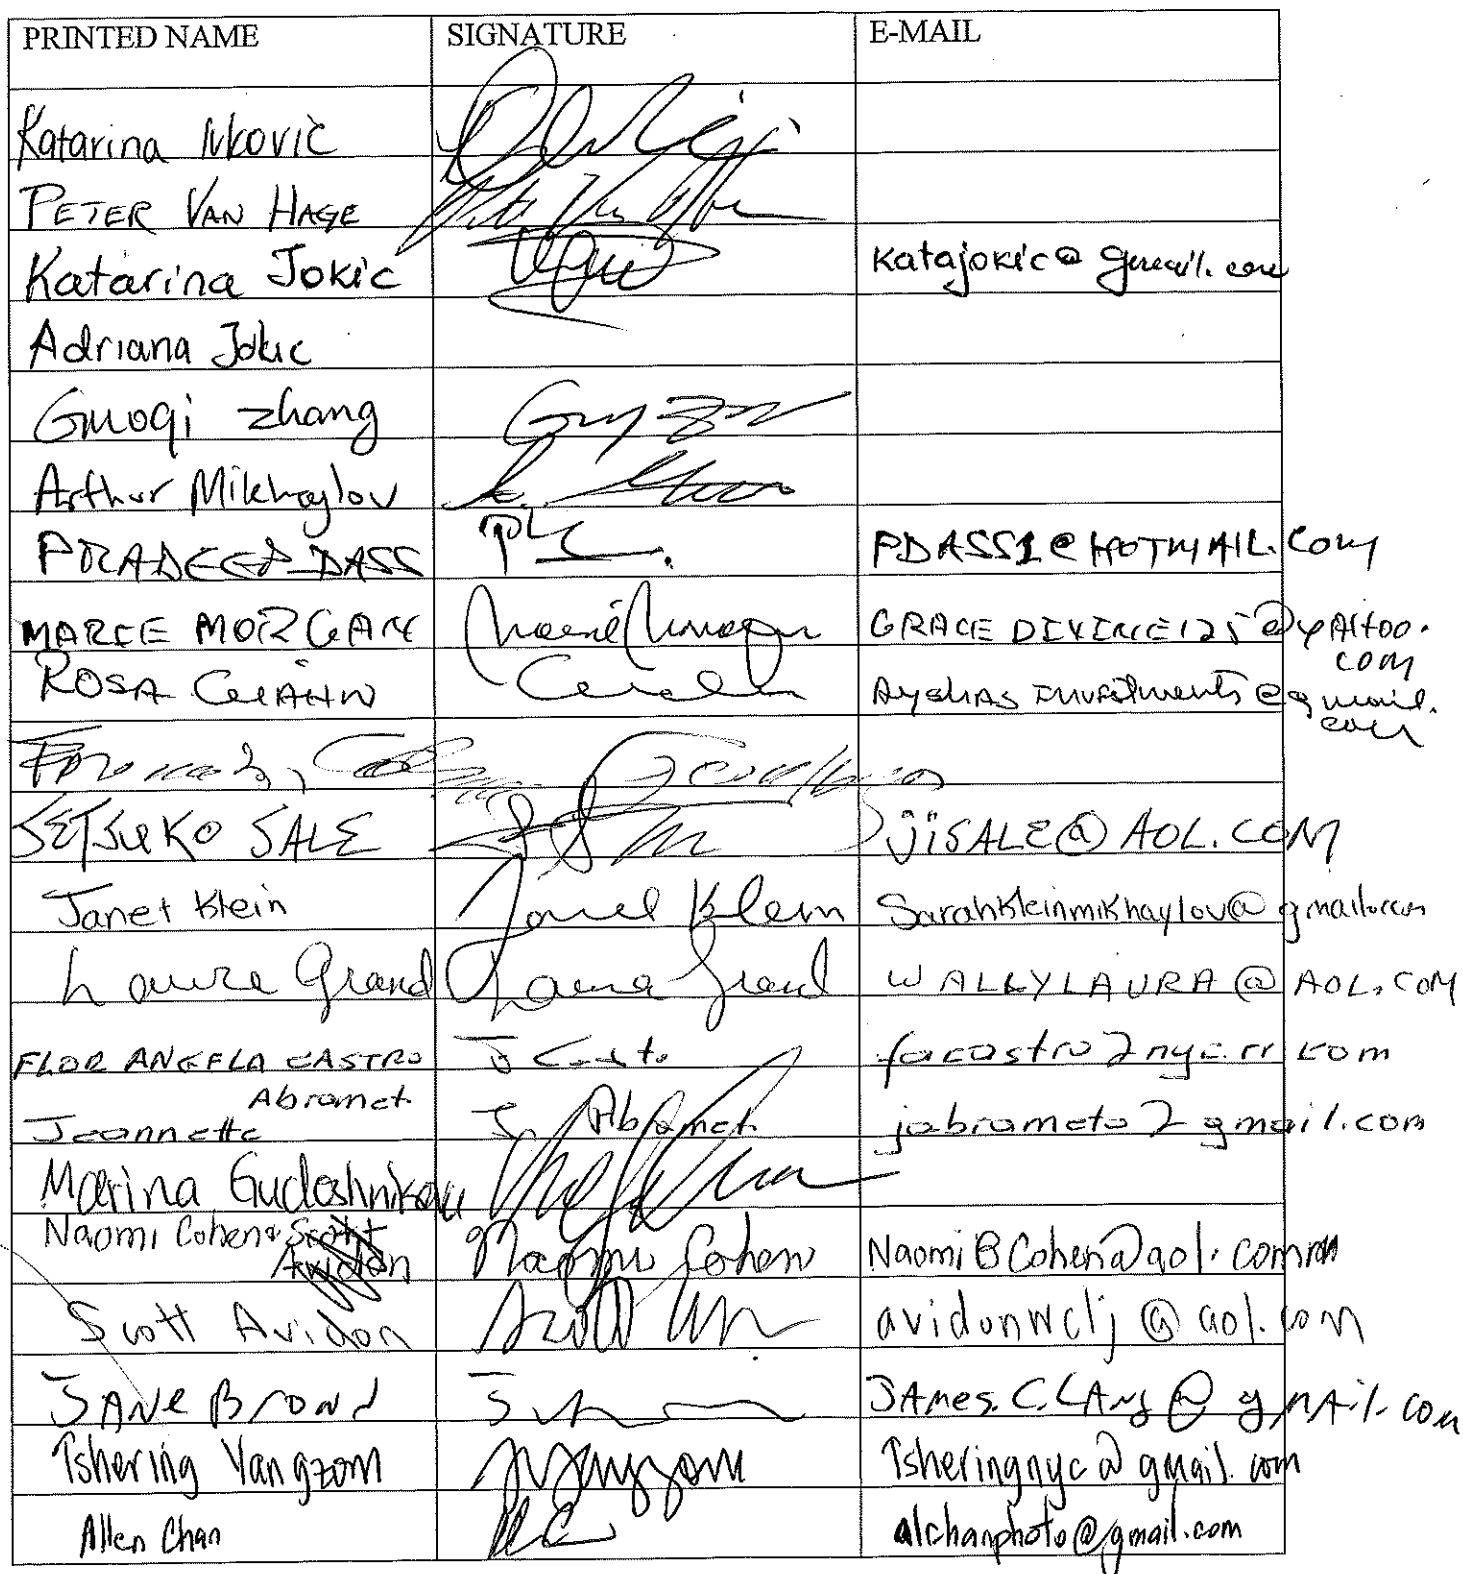 PRINTED NAME SIGNATURE E-MAIL
Katarina Ivkovic
PETER VAN HAGE
Katarina Jokic Katajokic@gmail.com
Adriana Jokic
Guoqi zhang
Arthur Mikhaylov
PRADEEP DASS PDASS1@HOTMAIL.COM
MARCE MORGAN GRACE DIVINE125@YAHOO.
COM
ROSA Ayshas Investments@gmail.
com
SETSUKO SALE jiSALE@AOL.COM
Janet Klein Janet Klein Sarahkleinmikhaylov@gmail.com
Laura Grand Laura Grand WALLYLAURA@AOL.COM
FLOR ANGELA CASTRO facastro2nyc.rr.com
Abramet
Jeannette J. Abramet jabrameto2gmail.com
Marina Gudoshnikova
Naomi Cohen & Scott
Avidon Naomi Cohen NaomiBCohen@aol.com
Scott Avidon Scott avidonwclj@aol.com
JANE Brond JAMes.C.LANg@gmAil.com
Tshering Yangzom Yangzom Tsheringnyc@gmail.com
Allen Chan alchanphoto@gmail.com